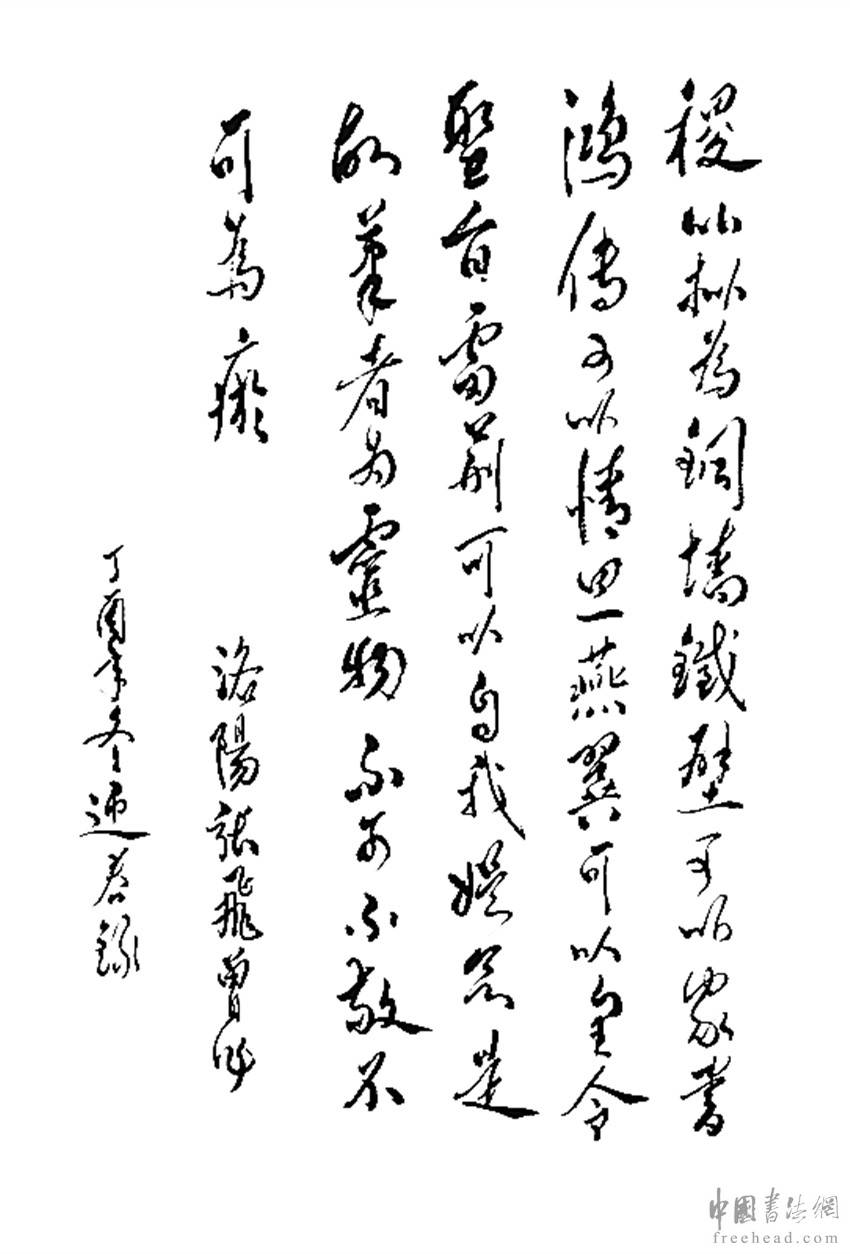 稷以拟為銅墙鐵壁可以家書
鴻傳可以情思燕翼可以皇令
聖旨雷荊可以自我娱忘是
故筆者为靈物不可不敬不
可為癡
洛陽張飛曹
丁酉年冬迎春錄
中國書法網
freehead.com